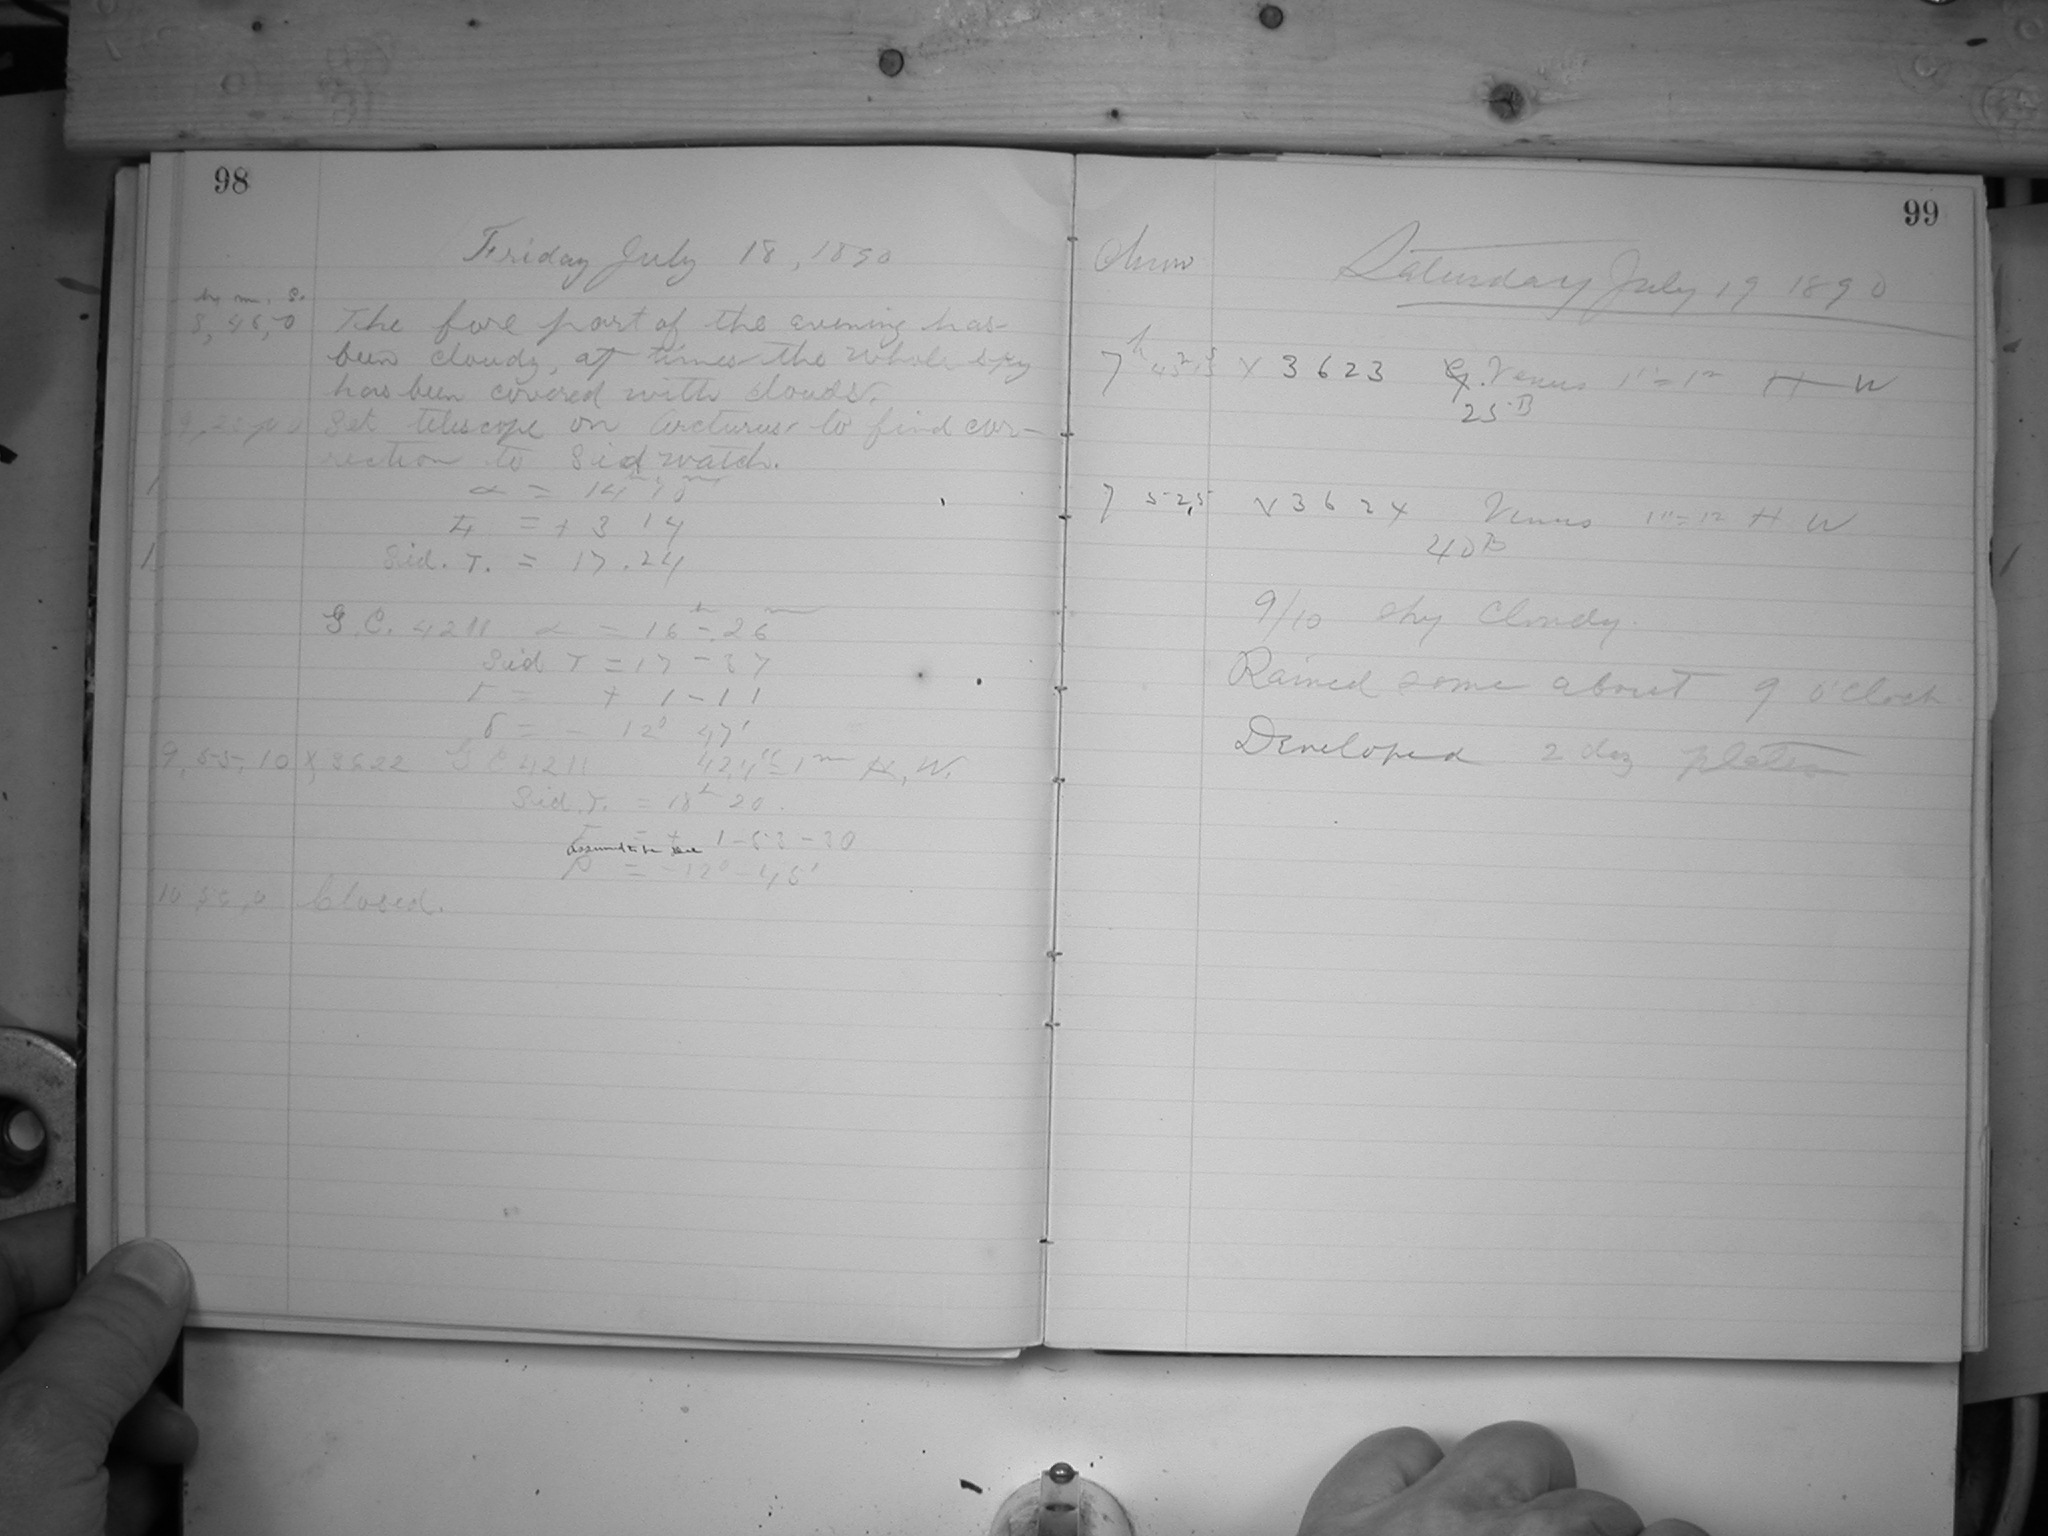 98
Friday July 18, 1890
h. m. s.
8, 45, 0 The fore part of the evening has
been cloudy, at times the whole sky
has been covered with clouds.
Set telescope on Arcturus to find cor-
rection to Sid watch.
α = 14 10
= + 3 14
Sid. T. = 17.24
G.C. 4211 α = 16h - 26m
Sid T = 17 - 37
τ = + 1 - 11
δ = - 12° 47'
9, 55, 10 X 3622 G C 4211 H, W.
Sid. T. = 18h 20.
= + 1 - 53 - 30
Assumed to be
= - 12° - 45'
Closed.
99
Saturday July 19 1890
7h X 3623 Venus 1"=1m H W
25 B
7 52,5 X 3624 Venus 1"=1m H W
40 B
9/10 sky Cloudy.
Rained some about 9 o'Clock
Developed 2 doz plates